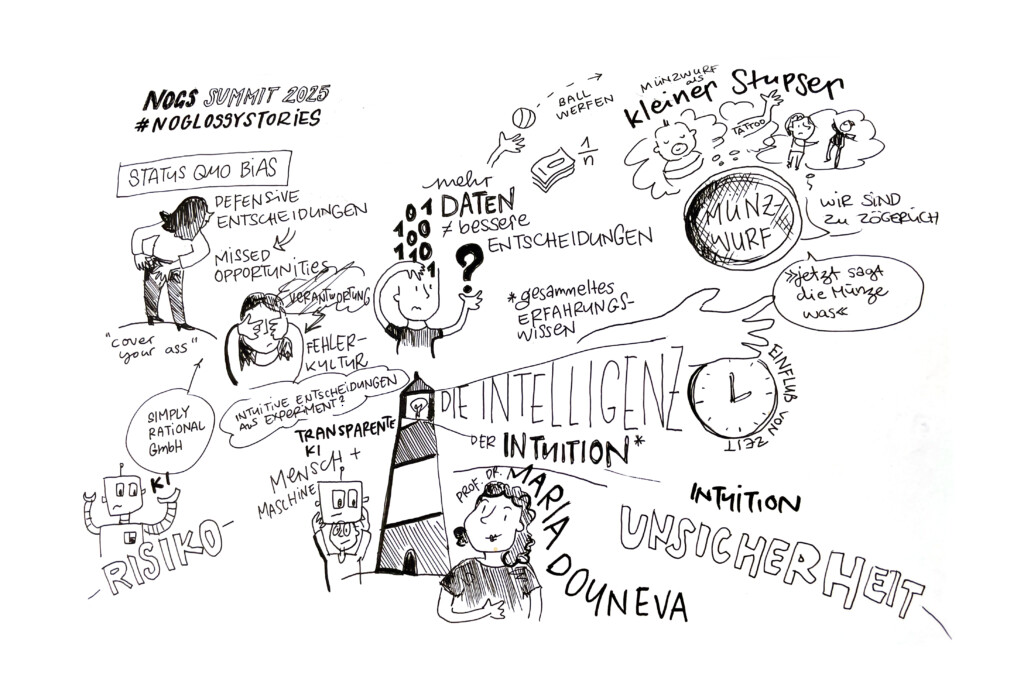 NOGS SUMMIT 2025
#NOGLOSSYSTORIES
STATUS QUO BIAS
DEFENSIVE
ENTSCHEIDUNGEN
MISSED
OPPORTUNITIES
VERANTWORTUNG
FEHLER-
KULTUR
"cover
your ass"
SIMPLY
RATIONAL
GmbH
KI
RISIKO
INTUITIVE ENTSCHEIDUNGEN
AUS EXPERIMENT?
TRANSPARENTE
KI
MENSCH +
MASCHINE
mehr
DATEN
≠ bessere
ENTSCHEIDUNGEN
01
100
110
1
?
*gesammeltes
ERFAHRUNGS-
WISSEN
BALL
WERFEN
1
n
MÜNZWURF
als
kleiner Stupser
TATTOO
MÜNZ-
WURF
WIR SIND
ZU ZÖGERLICH
»jetzt sagt
die Münze
was«
DIE INTELLIGENZ
DER INTUITION*
EINFLUß VON
ZEIT
PROF. DR.
MARIA
DOUNEVA
INTUITION
UNSICHERHEIT